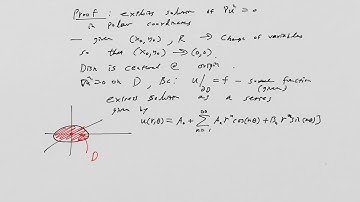 Proof: explicit solution of ∇²u = 0
in polar coordinates
— given (x₀,y₀), R → Change of variables
so that (x₀,y₀) → (0,0).
Disk is centered @ origin.
∇²u = 0 on D, BC: u|∂D = f — some function
(given)
express solution as a series
given by
u(r,θ) = A₀ + ∑ₙ₌₁^∞ [Aₙ rⁿ cos(nθ) + Bₙ rⁿ sin(nθ)]
D